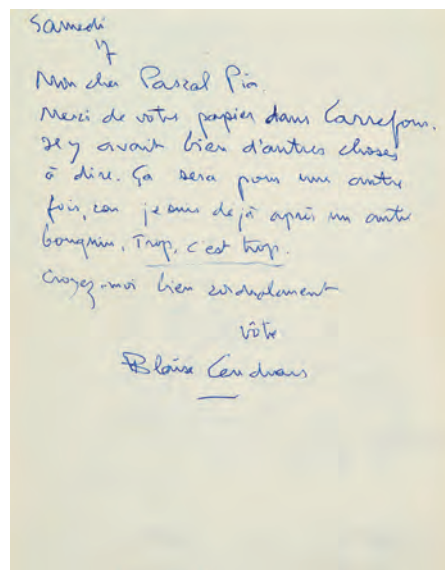 Samedi
17
Mon cher Pascal Pia.
Merci de votre papier dans Carrefour.
Il y avait bien d'autres choses
à dire. Ça sera pour une autre
fois, car je suis déjà après un autre
bouquin, Trop, c'est trop.
Croyez-moi bien cordialement
vôtre
Blaise Cendrars